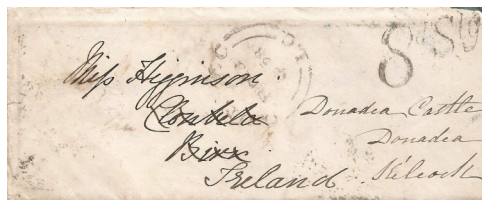 Miss Higginson
Birr
Ireland
Donadea Castle
Donadea
Kilcock